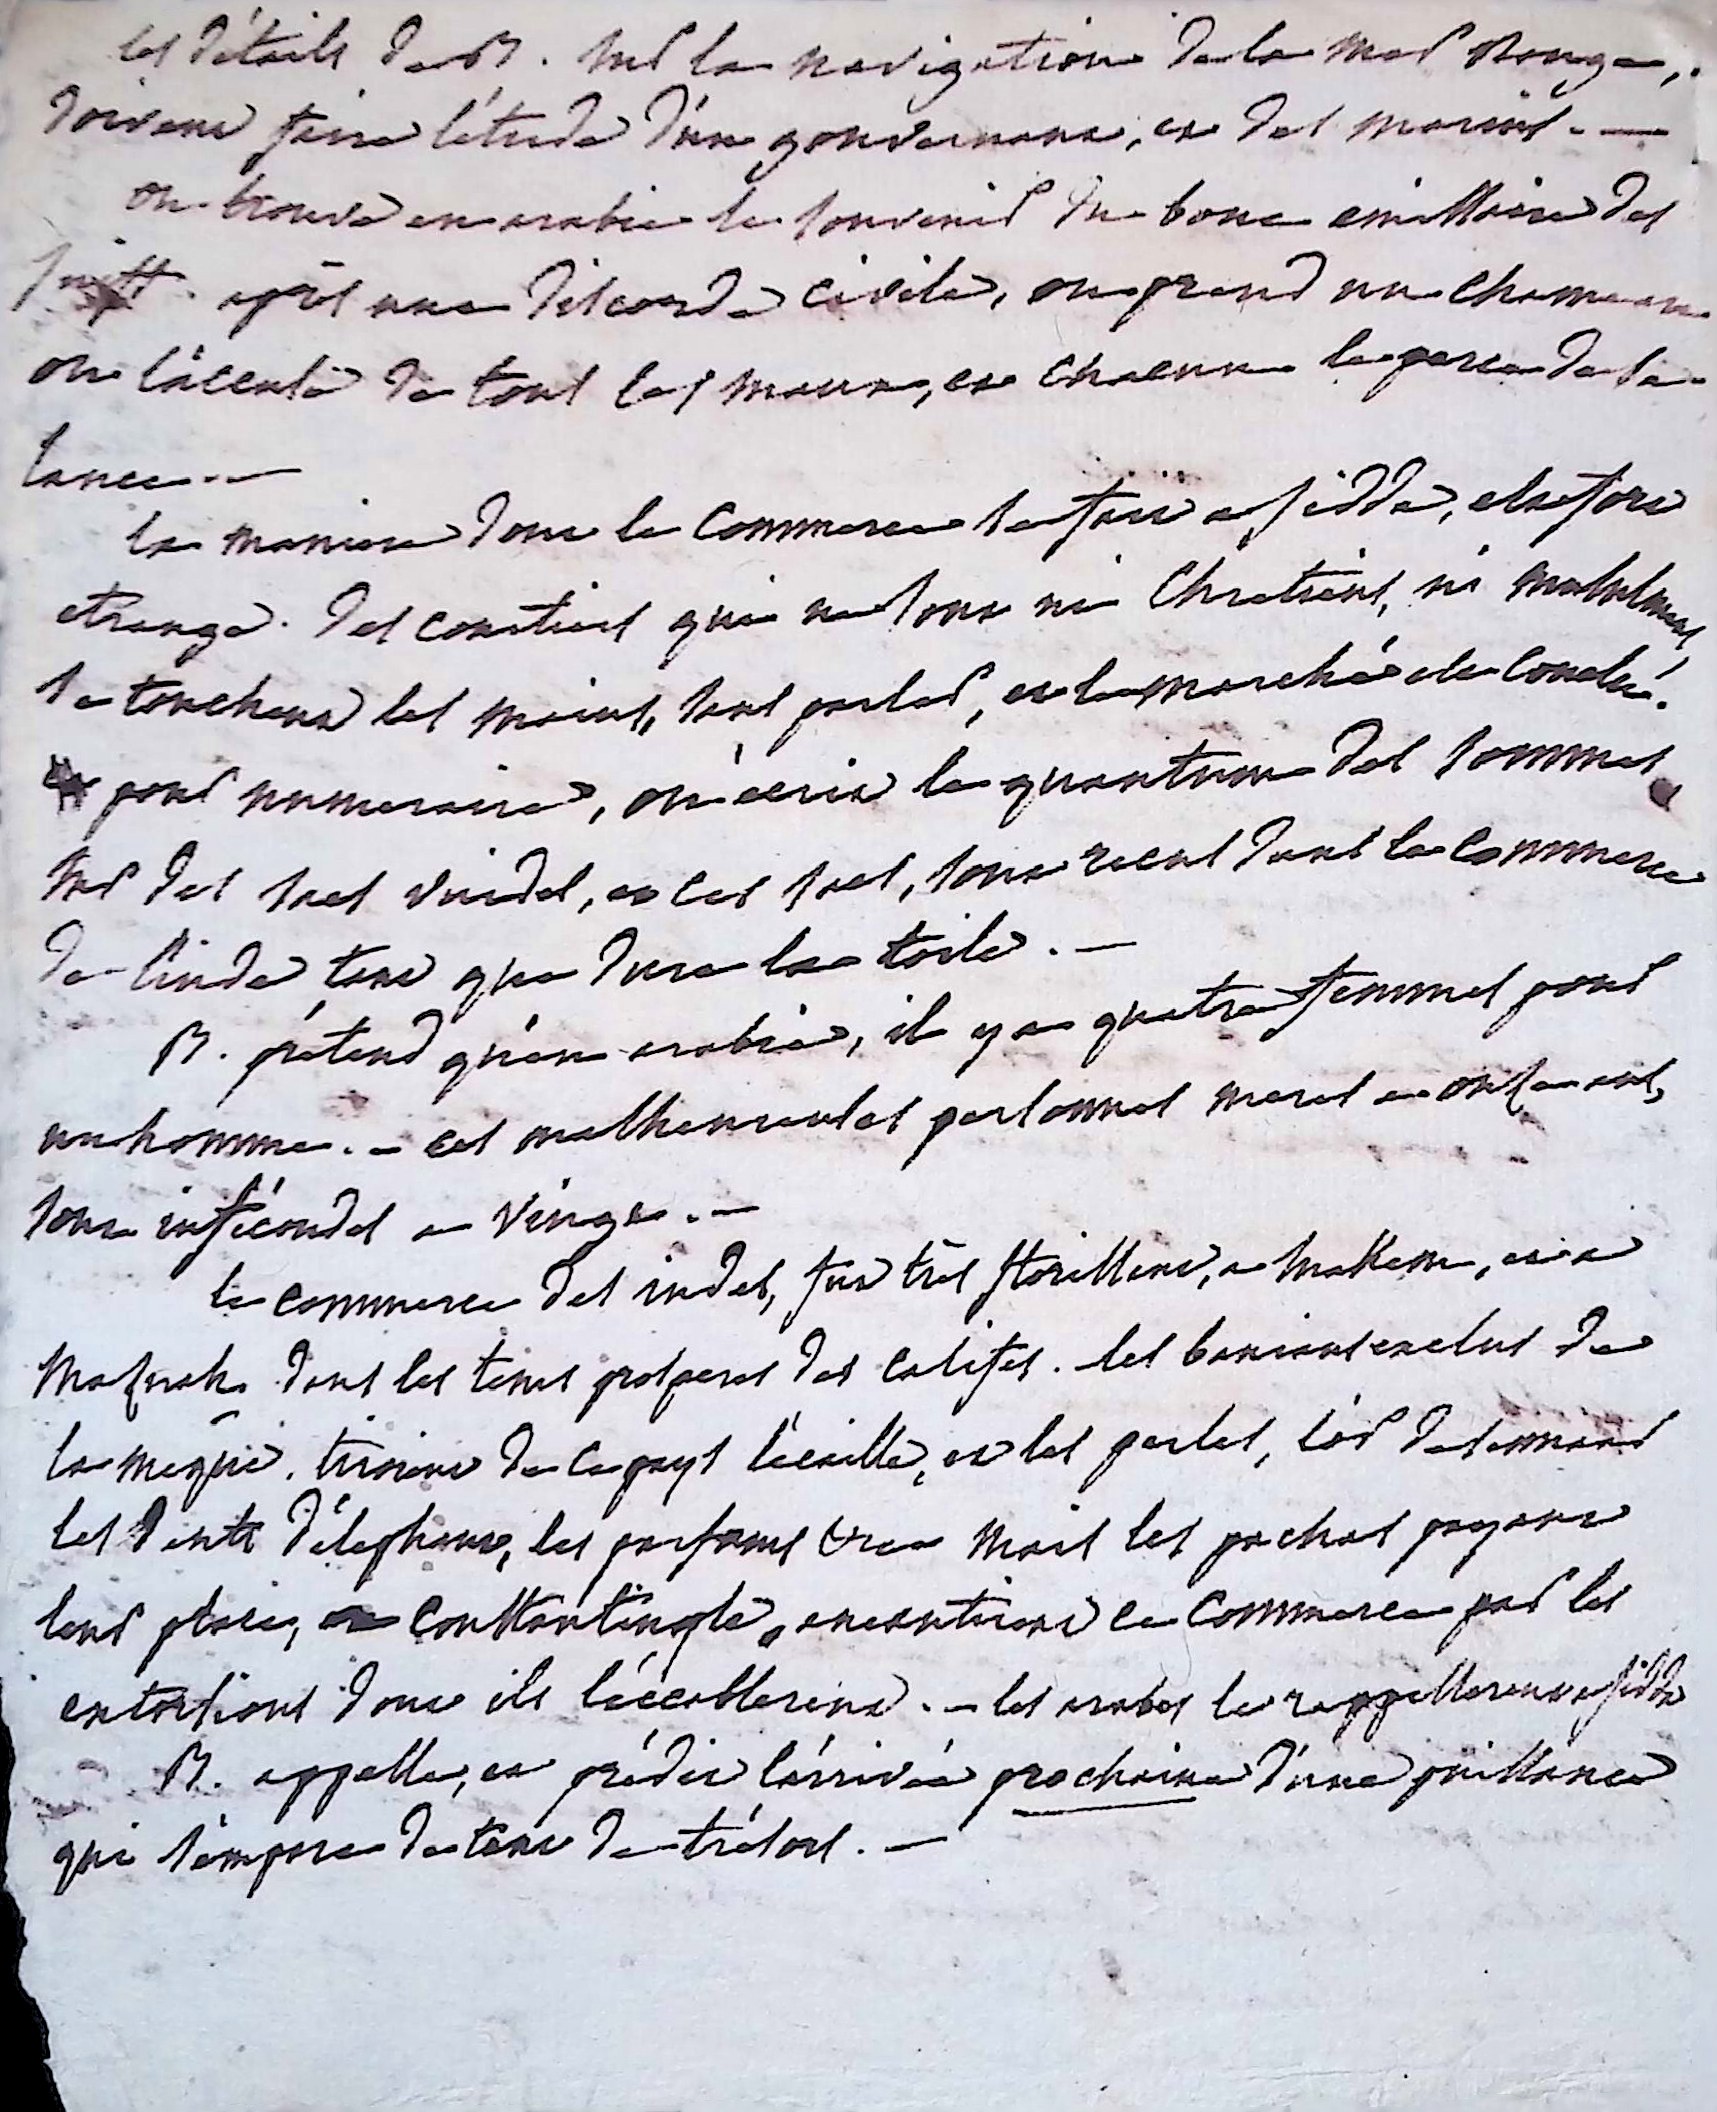 les détails de B. sur la navigation de la mer Rouge,
doivent faire l'étude d'un gouvernant, et des marins. —
on trouve en arabie le souvenir du bouc emissaire des
juifs. après une discorde civile, on prend un chameau
on l'accuse de tous les maux, et chacun le perce de sa
lance. —
la maniere dont le commerce se fait a jidda, est fort
etrange. des courtiers qui ne sont ni Chretiens, ni musulmans
se touchent les mains, sans parler, et le marché est conclu.
pour numeraire, on écrit le quantum des sommes
sur des sacs vuides, et ces sacs, sont recus dans le commerce
de l'inde tant que dure la toile. —
B. prétend qu'en arabie, il y a quatre femmes pour
un homme. — ces malheureuses personnes meres a onze ans,
sont infécondes a vingt. —
le commerce des indes, fut très florissant, a Mokem, et a
Mafuah dans les tems prosperes des califes. les banians exclus de
la meque. tiroient de ce pays l'écaille, et les perles, l'or de sennaar
les dents d'elephant, les parfums &c. mais les pachas payant
leur place, a Constantinople, aneantirent ce commerce par les
extorsions dont ils l'accablerent. — les arabes le rappellerent a jidda
B. appelle, et prédit l'arrivée prochaine d'une puissance
qui s'empare de tant de trésors. —